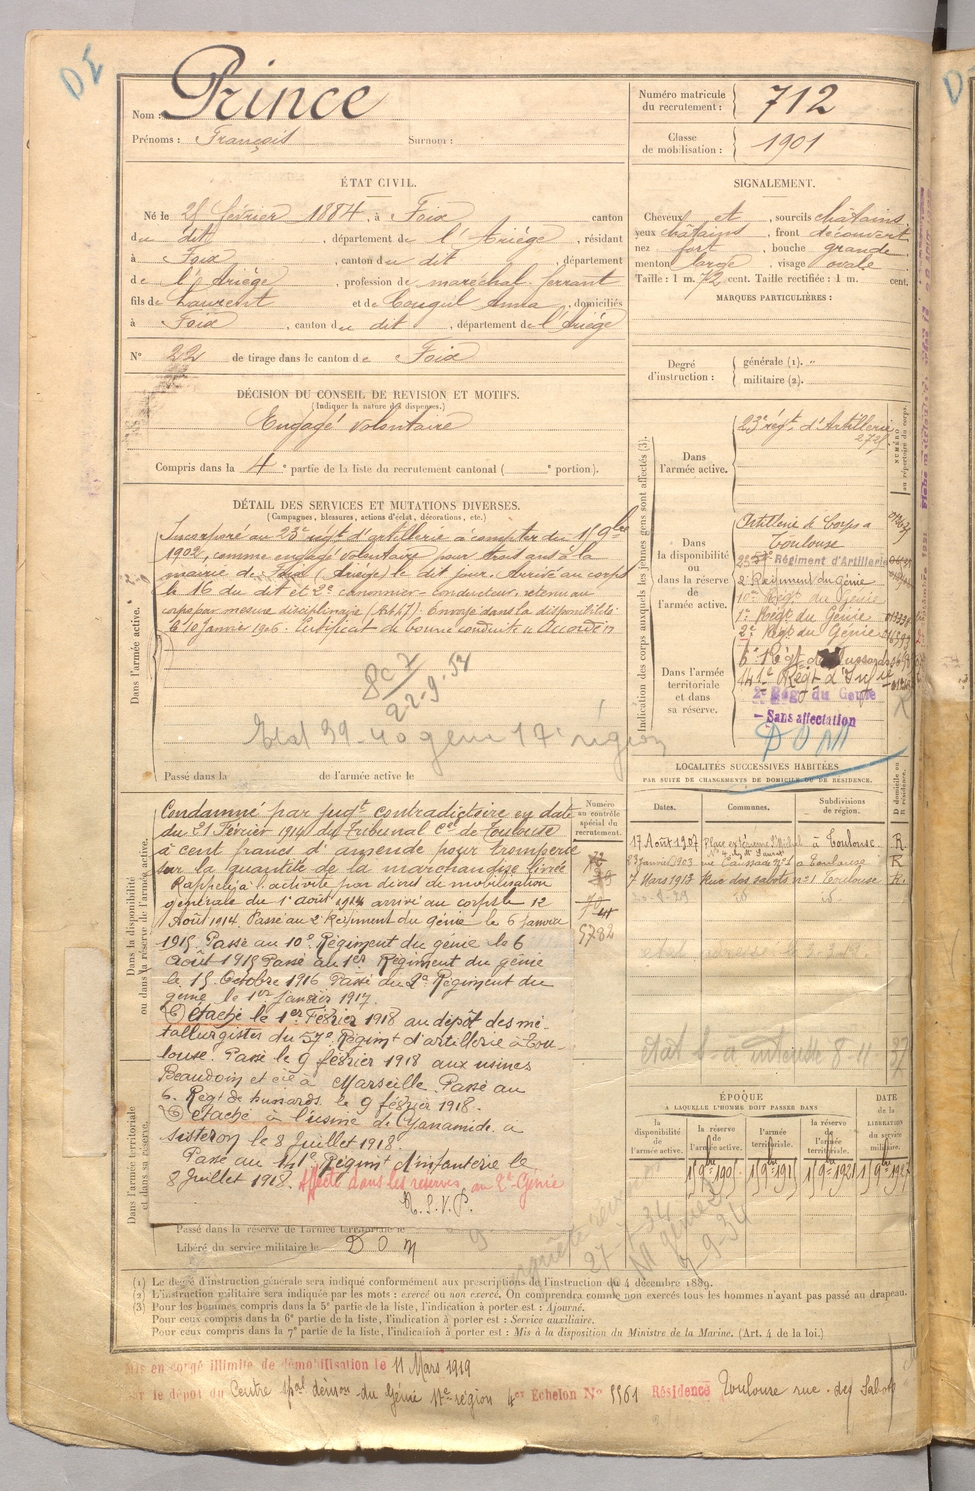 DE
Nom : Prince
Prénoms : François Surnom :
Numéro matricule du recrutement : 712
Classe de mobilisation : 1901
ÉTAT CIVIL.
Né le 28 février 1884, à Foix canton
du dit, département de l'Ariège, résidant
à Foix, canton du dit, département
de l'Ariège, profession de maréchal ferrant
fils de Laurent et de Anna, domiciliés
à Foix, canton du dit, département de l'Ariège
N° 22 de tirage dans le canton de Foix
SIGNALEMENT.
Cheveux et, sourcils châtains
yeux châtains, front découvert
nez fort, bouche grande
menton large, visage ovale
Taille : 1 m. 72 cent. Taille rectifiée : 1 m. cent.
MARQUES PARTICULIÈRES :
Degré d'instruction : générale (1). "
militaire (2).
DÉCISION DU CONSEIL DE REVISION ET MOTIFS.
(Indiquer la nature des dispenses.)
Engagé volontaire
Compris dans la 4e partie de la liste du recrutement cantonal ( e portion).
DÉTAIL DES SERVICES ET MUTATIONS DIVERSES.
(Campagnes, blessures, actions d'éclat, décorations, etc.)
Dans l'armée active.
Incorporé au 23e régt d'artillerie à compter du 15 9bre
1902, comme engagé volontaire pour trois ans à la
mairie de Foix (Ariège) le dit jour. Arrivé au corps
le 16 du dit et 2e canonnier-conducteur, retenu au
corps par mesure disciplinaire Envoyé dans la disponibilité
le 10 janvier 1906. Certificat de bonne conduite "Accordé"
22-9-34
Etat 39-40 génie 17e région
Passé dans la de l'armée active le
Indication des corps auxquels les jeunes gens sont affectés (3).
NUMÉRO au répertoire du corps.
Dans l'armée active.
23e régt d'Artillerie
Dans la disponibilité ou dans la réserve de l'armée active.
Artillerie de Corps à
Toulouse
Régiment d'Artillerie
2e Régiment du Génie
10e Régt du Génie
1er Régt du Génie
2e Régt du Génie
Dans l'armée territoriale et dans sa réserve.
6e Régt de Hussards
141e Régt d'Infie
2e Rég. du Génie
Sans affectation
DOM
Dans la disponibilité ou dans la réserve de l'armée active.
Dans l'armée territoriale et dans sa réserve.
Condamné par jugt contradictoire en date
du 21 Février 1914 du Tribunal Cel de Toulouse
à cent francs d'amende pour tromperie
sur la quantité de la marchandise livrée
Rappelé à l'activité par décret de mobilisation
générale du 1er août 1914 arrivé au corps le 12
Août 1914. Passé au 2e Régiment du génie le 6 janvier
1915. Passé au 10e Régiment du génie le 6
août 1915 Passé au 1er Régiment du génie
le 15 Octobre 1916 Passé au 2e Régiment du
génie le 1er janvier 1917.
Détaché le 1er Février 1918 au dépôt des mé-
tallurgistes du 57e Régimt d'artillerie à Tou-
louse. Passé le 9 février 1918 aux usines
Beaudoin et cie à Marseille. Passé au
6. Régt de hussards le 9 février 1918.
Détaché à l'usine de Cyanamide à
Sisteron le 8 Juillet 1918.
Passé au 141e Régimt d'infanterie le
8 Juillet 1918. Affecté dans les réserves au 2e Génie
R.S.V.P.
Passé dans la réserve de l'armée territoriale le
Libéré du service militaire le DOM
Numéro au contrôle spécial du recrutement.
5782
LOCALITÉS SUCCESSIVES HABITÉES
PAR SUITE DE CHANGEMENTS DE DOMICILE OU DE RÉSIDENCE.
Dates. Communes. Subdivisions de région. D domicile ou R résidence.
17 Août 1907 Place extérieure St Michel à Toulouse R.
n°1 à Toulouse R
7 Mars 1913 Rue des sabots n°1 Toulouse R.
8-11-37
ÉPOQUE
A LAQUELLE L'HOMME DOIT PASSER DANS
la disponibilité de l'armée active. la réserve de l'armée active. l'armée territoriale. la réserve de l'armée territoriale. DATE de la LIBÉRATION du service militaire.
15 9bre 1905 15 9bre 1915 15 9bre 1921 15 9bre 1927
(1) Le degré d'instruction générale sera indiqué conformément aux prescriptions de l'instruction du 4 décembre 1889.
(2) L'instruction militaire sera indiquée par les mots : exercé ou non exercé. On comprendra comme non exercés tous les hommes n'ayant pas passé au drapeau.
(3) Pour les hommes compris dans la 5e partie de la liste, l'indication à porter est : Ajourné.
Pour ceux compris dans la 6e partie de la liste, l'indication à porter est : Service auxiliaire.
Pour ceux compris dans la 7e partie de la liste, l'indication à porter est : Mis à la disposition du Ministre de la Marine. (Art. 4 de la loi.)
Mis en congé illimité de démobilisation le 11 Mars 1919
par le dépôt du Centre du Génie 17e région 4er Echelon N° 5561 Résidence Toulouse rue des Sabots